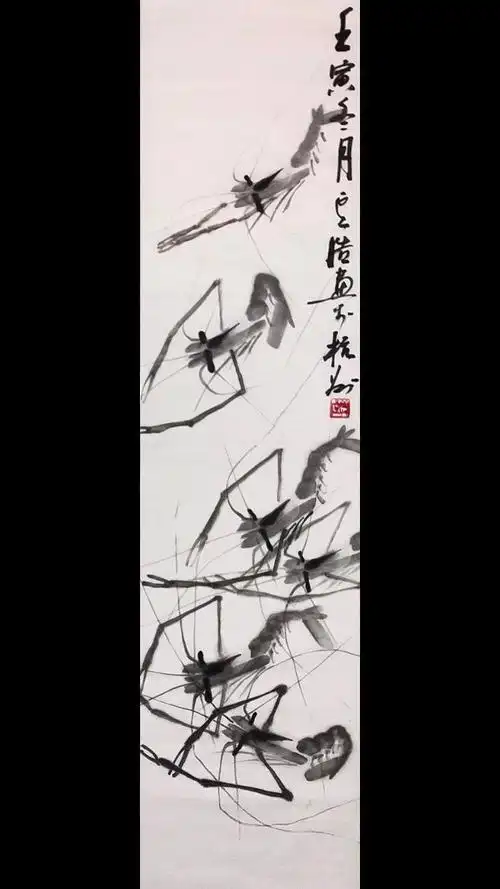 壬寅冬月浩画于杭州